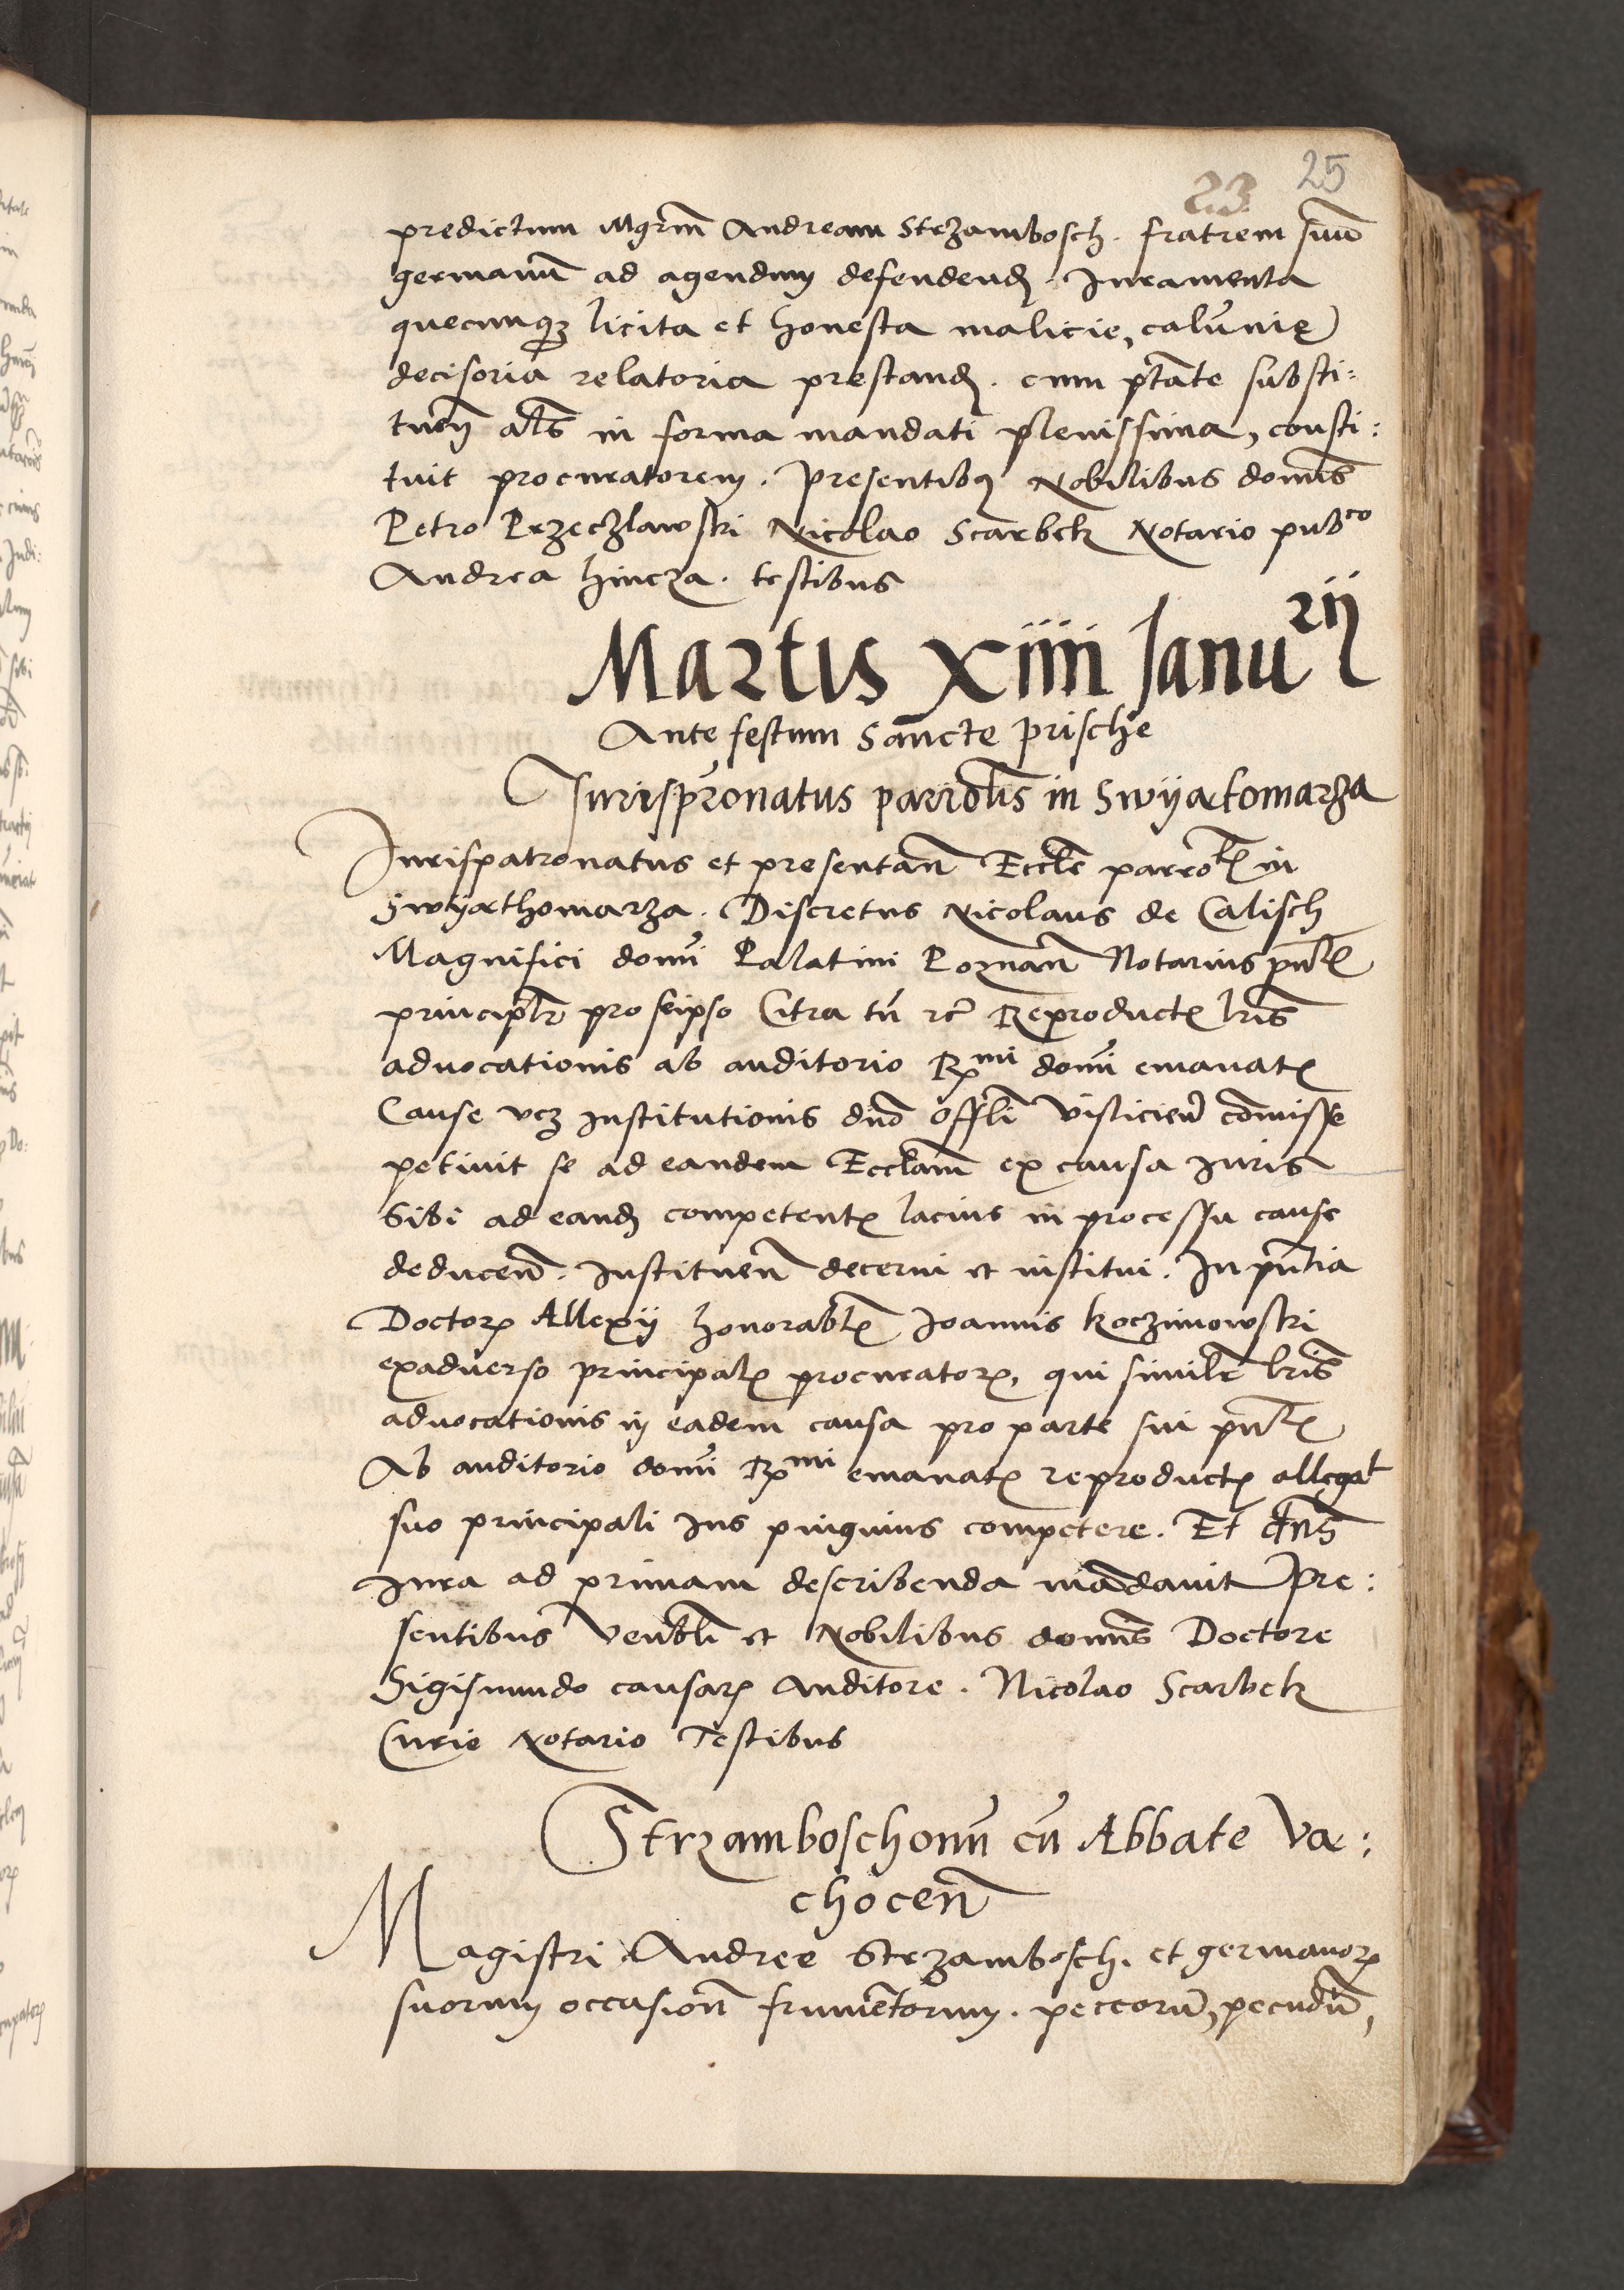 25
23
predictum Mgrm̄ Andream Strzambosch. fratrem suū
germanū ad agendum defendend. Iuramenta
quecunq3 licita et honesta malicie, calūnie
decisoria relatoria prestand. cum ptāte substi:
tuen als̄ in forma mandati plenissima, consti:
tuit procuratorem. Presentibus Nobilibus domīs
Petro Przeczlawski Nicolao Scarbek Notario pubco
Andrea hincza. testibus
Martis xiiii Januarii
Ante festum Sancte Prische
Jurispronatus parrotis in Swyatomarza
Jurispatronatus et presentan̄ Eccle parro in
Swyathomarza. Discretus Nicolaus de Calisch
Magnifici domī Palatini Poznan̄ Notarius pn̄
principlr pro seipso Citra tn̄ rc̄ Reproductis lris̄
advocationis ab auditorio Rmi domī emanatis
Cause vcz Institutionis dno offli Visliciens comisse
petiuit se ad eandem Eccliam ex causa iuris
Sibi ad eand competentis lacius in processu cause
deducen̄. Instituen̄ decerni et institui. In pn̄tia
Doctoris Allexii honorablis Joannis Koczmowski
exaduerso principalis procuratoris, qui similr lris̄
advocationis in eadem causa pro parte sui pn̄
Ab auditorio domī Rmi emanatis reproductis allegat
suo principali ius pinguius competere. Et dn̄s
iura ad primam describenda mādauit Pre:
sentibus Venbli et Nobilibus domīs Doctore
Sigismundo causarum Auditore. Nicolao Scarbek
Curie Notario Testibus
Strzamboschonū cū Abbate Va:
chocen̄
Magistri Andree Strzambosch. et germanorum
suorum occasion̄ frumētorum. peccorū, pecudū,